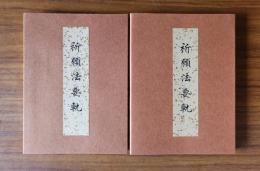 祈願法要軌
祈願法要軌